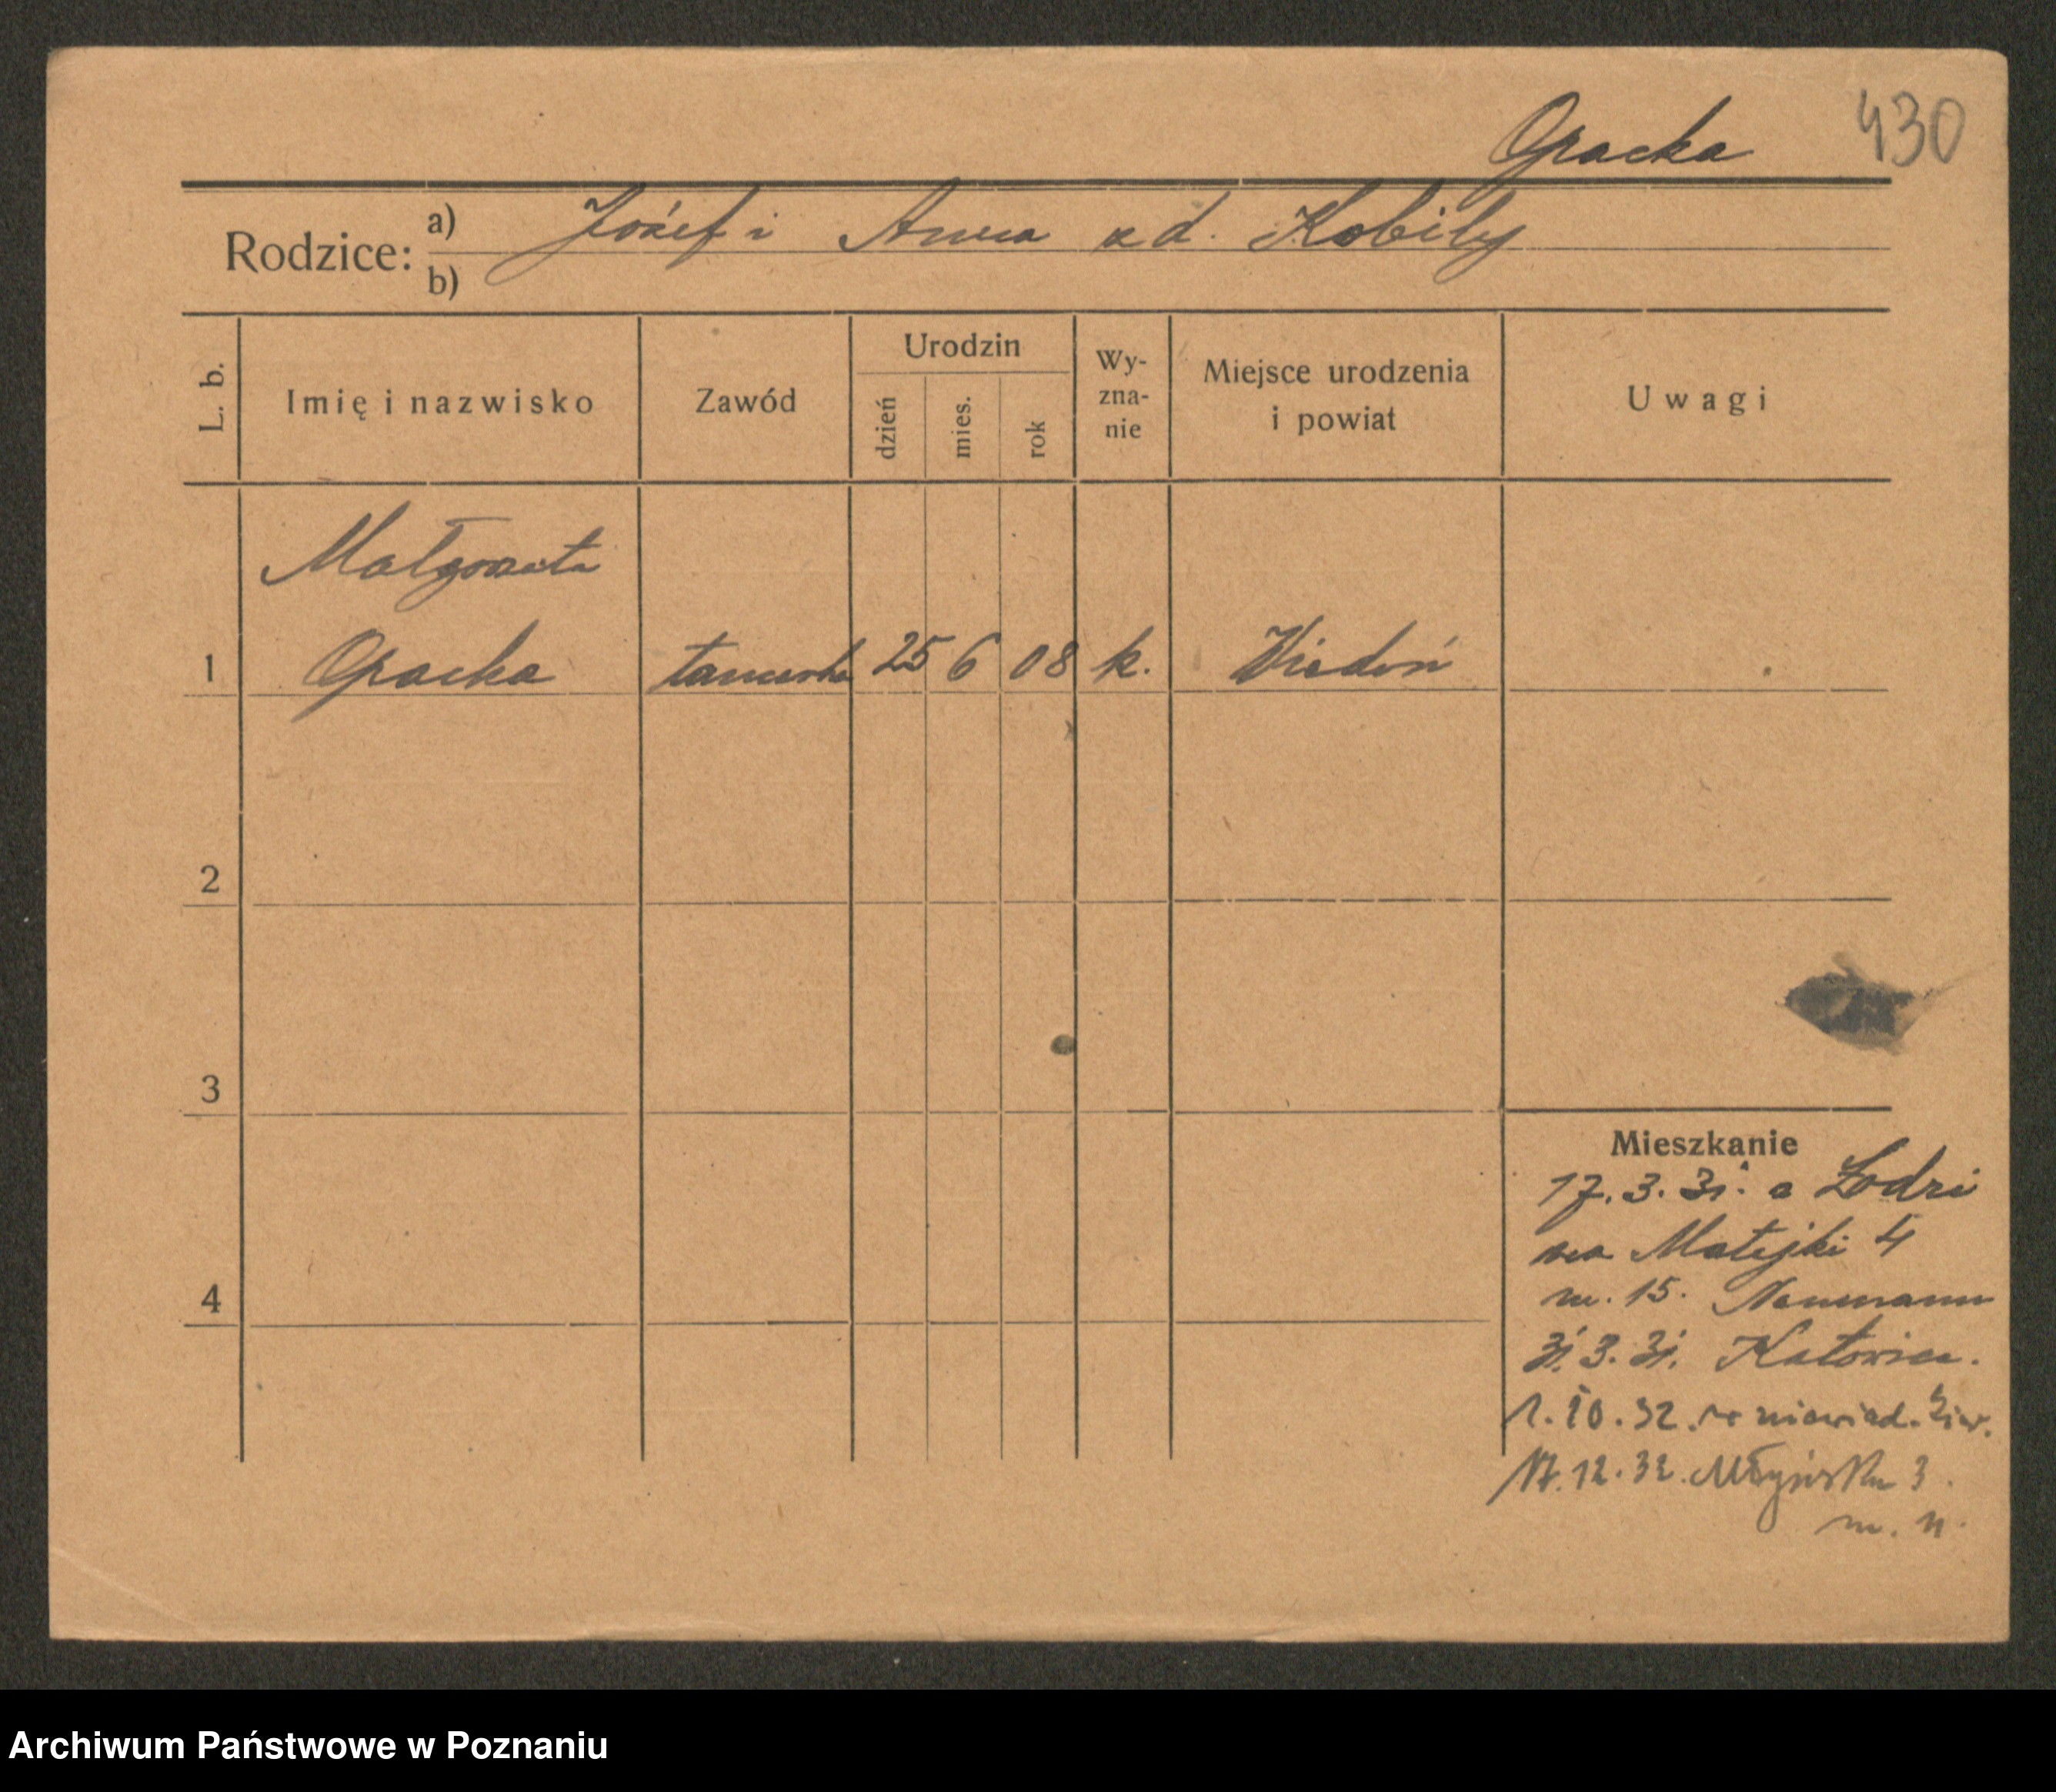 430
Opacka
Rodzice: a) Józef i Anna zd. Kobiley
b)
L. b.
Imię i nazwisko
Zawód
Urodzin
dzień
mies.
rok
Wy-
zna-
nie
Miejsce urodzenia
i powiat
Uwagi
Małgorzata
1 Opacka tancerka 25 6 08 k. Wiedeń
2
3
4
Mieszkanie
17.3.31. z Łodzi
na Matejki 4
m. 15. Naumann
31.3.31. Katowice.
1.10.32. niewiad.
17.12.32. Młyńska 3.
m. 11.
Archiwum Państwowe w Poznaniu